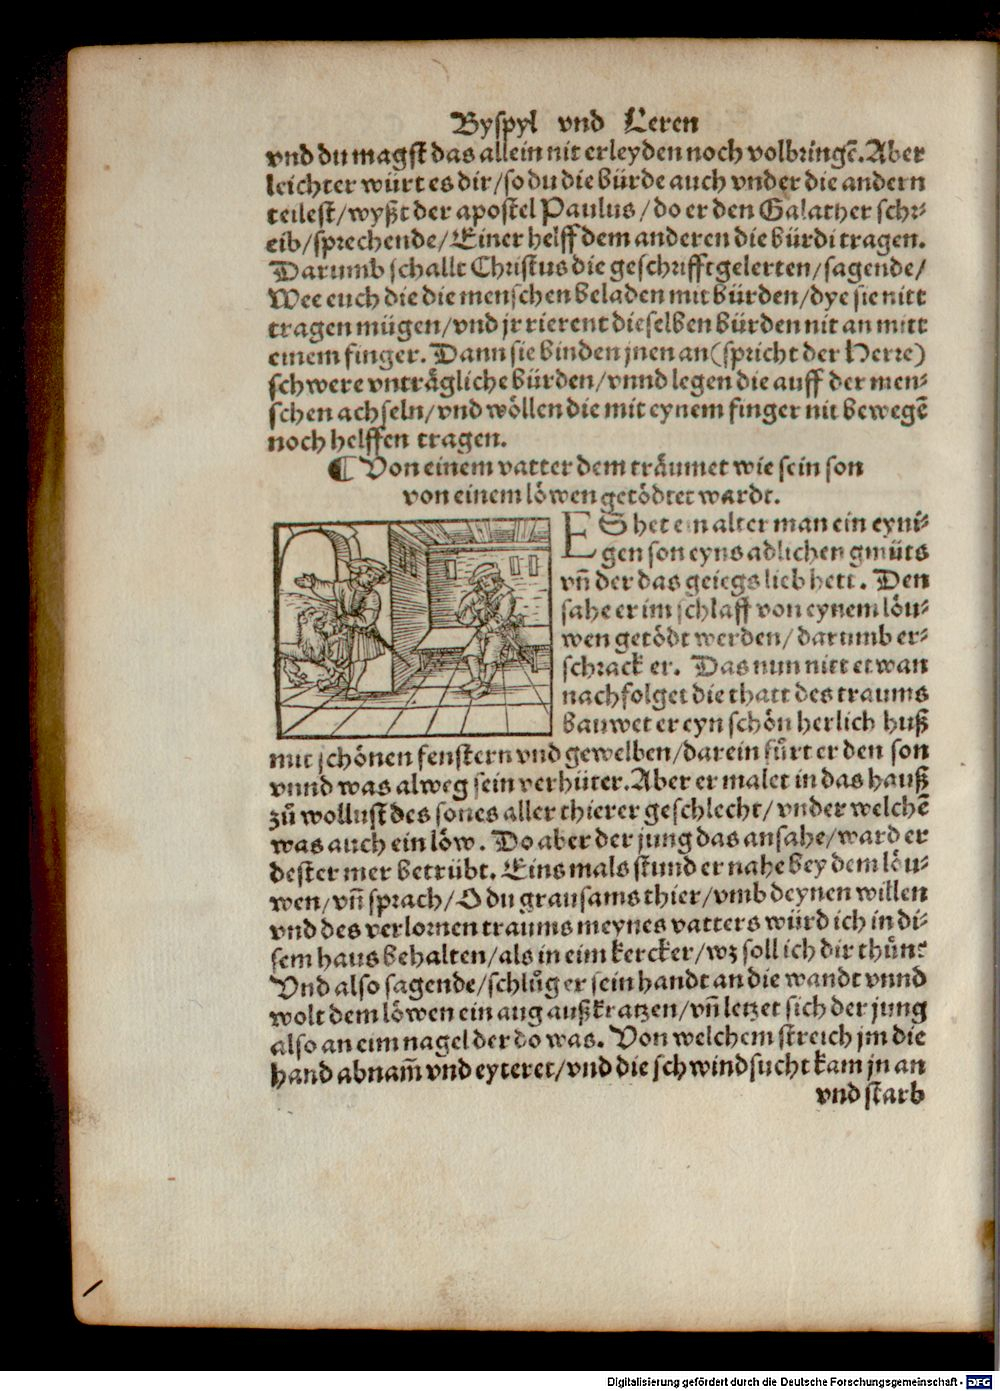 Byspyl vnd Leren
vnd du magst das allein nit erleyden noch volbringē. Aber
leichter würt es dir/ so du die bürde auch vnder die andern
teilest/ wyßt der apostel Paulus/ do er den Galather schr⸗
eib/ sprechende/ Einer helff dem anderen die bürdi tragen.
Darumb schallt Christus die geschrifft gelerten/ sagende/
Wee euch die die menschen beladen mit bürden/ dye sie nitt
tragen mügen/ vnd jr rierent die selben bürden nit an mitt
einem finger. Dann sie binden jnen an (spricht der Herre)
schwere vnträgliche bürden/ vnnd legen die auff der men⸗
schen achseln/ vnd wöllen die mit eynem finger nit bewegē
noch helffen tragen.
¶ Von einem vatter dem träumet wie sein son
von einem löwen getödtet wardt.
ES het ein alter man ein eyni⸗
gen son eyns adlichen gmüts
vñ der das geiegs lieb hett. Den
sahe er im schlaff von eynem löu⸗
wen getödt werden/ darumb er⸗
schrack er. Das nun nitt etwan
nachfolget die thatt des traums
bauwet er eyn schön herlich huß
mit schönen fenstern vnd gewelben/ darein fůrt er den son
vnnd was alweg sein verhüter. Aber er malet in das hauß
zů wollust des sones aller thierer geschlecht/ vnder welchē
was auch ein löw. Do aber der jung das ansahe/ ward er
dester mer betrübt. Eins mals stund er nahe bey dem löu⸗
wen/ vñ sprach/ O du grausams thier/ vmb deynen willen
vnd des verlornen traums meynes vatters würd ich in di⸗
sem haus behalten/ als in eim kercker/ wz soll ich dir thůn:
Vnd also sagende/ schlůg er sein handt an die wandt vnnd
wolt dem löwen ein aug außkratzen/ vñ letzet sich der jung
also an eim nagel der do was. Von welchem streich jm die
hand abnam̄ vnd eyteret/ vnd die schwindsucht kam jn an
vnd starb
Digitalisierung gefördert durch die Deutsche Forschungsgemeinschaft - DFG